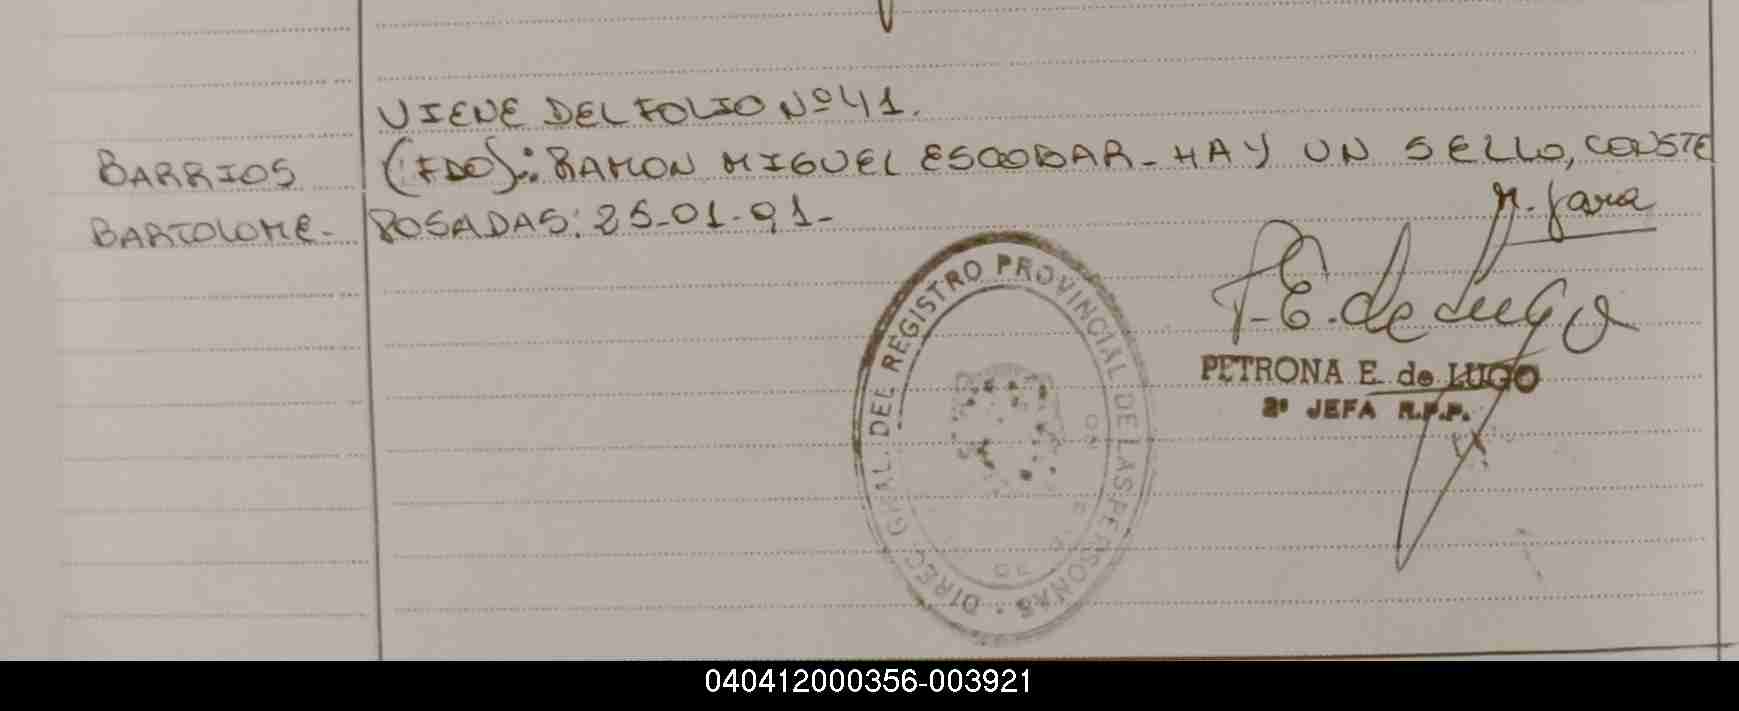 VIENE DEL FOLIO Nº 41.
BARRIOS (FDO):: RAMON MIGUEL ESCOBAR - HAY UN SELLO, CONSTE
BARTOLOME - POSADAS: 25-01-91-
M. Jara
P. E. de Lugo
PETRONA E. de LUGO
2º JEFA R.P.P.
DIREC. GRAL. DEL REGISTRO PROVINCIAL DE LAS PERSONAS
040412000356-003921